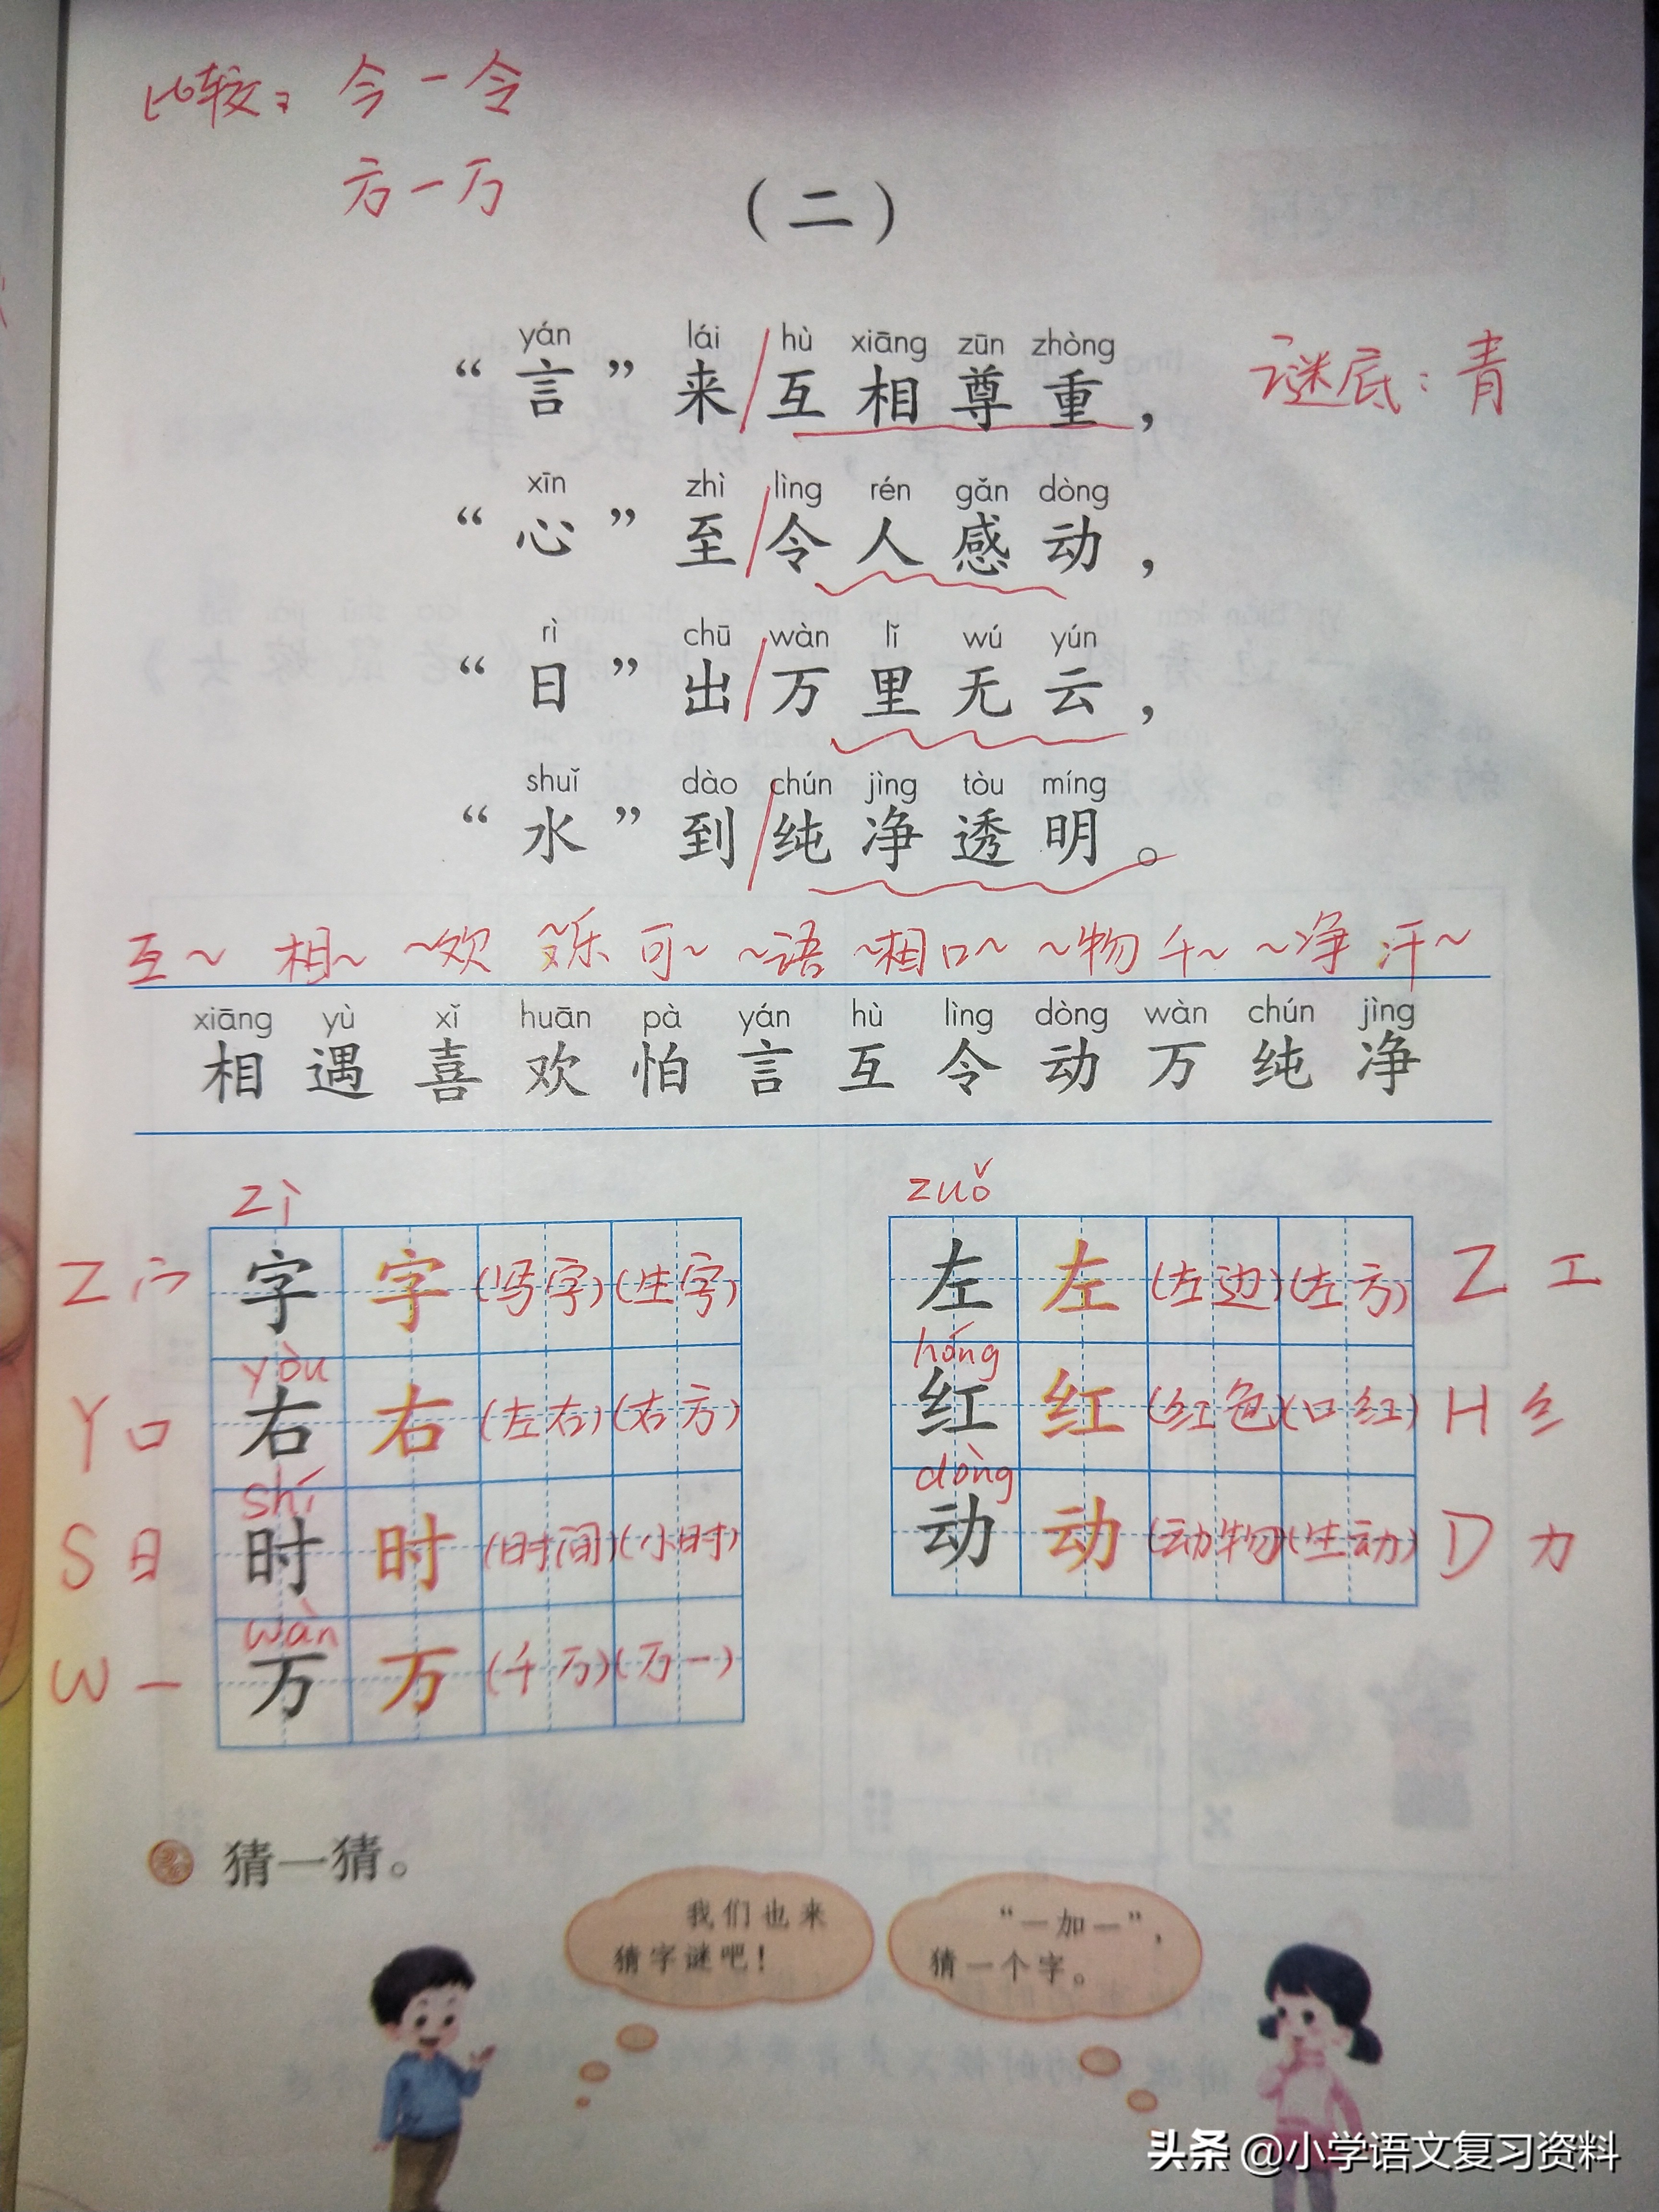 比较：今一令
方一万
（二）
yán lái hù xiāng zūn zhòng
“言”来互相尊重，
谜底：青
xīn zhì lìng rén gǎn dòng
“心”至令人感动，
rì chū wàn lǐ wú yún
“日”出万里无云，
shuǐ dào chún jìng tòu míng
“水”到纯净透明。
互～ 相～ ～欢 ～乐 可～ ～语 ～相 口～ ～物 千～ ～净 汗～
xiāng yù xǐ huān pà yán hù lìng dòng wàn chún jìng
相遇喜欢怕言互令动万纯净
zì
Z 宀 字 字 (写字)(生字)
yòu
Y 口 右 右 (左右)(右方)
shí
S 日 时 时 (时间)(小时)
wàn
W 一 万 万 (千万)(万一)
zuǒ
左 左 (左边)(左方) Z 工
hóng
红 红 (红色)(口红) H 纟
dòng
动 动 (动物)(生动) D 力
猜一猜。
我们也来
猜字谜吧！
“一加一”，
猜一个字。
头条 @小学语文复习资料